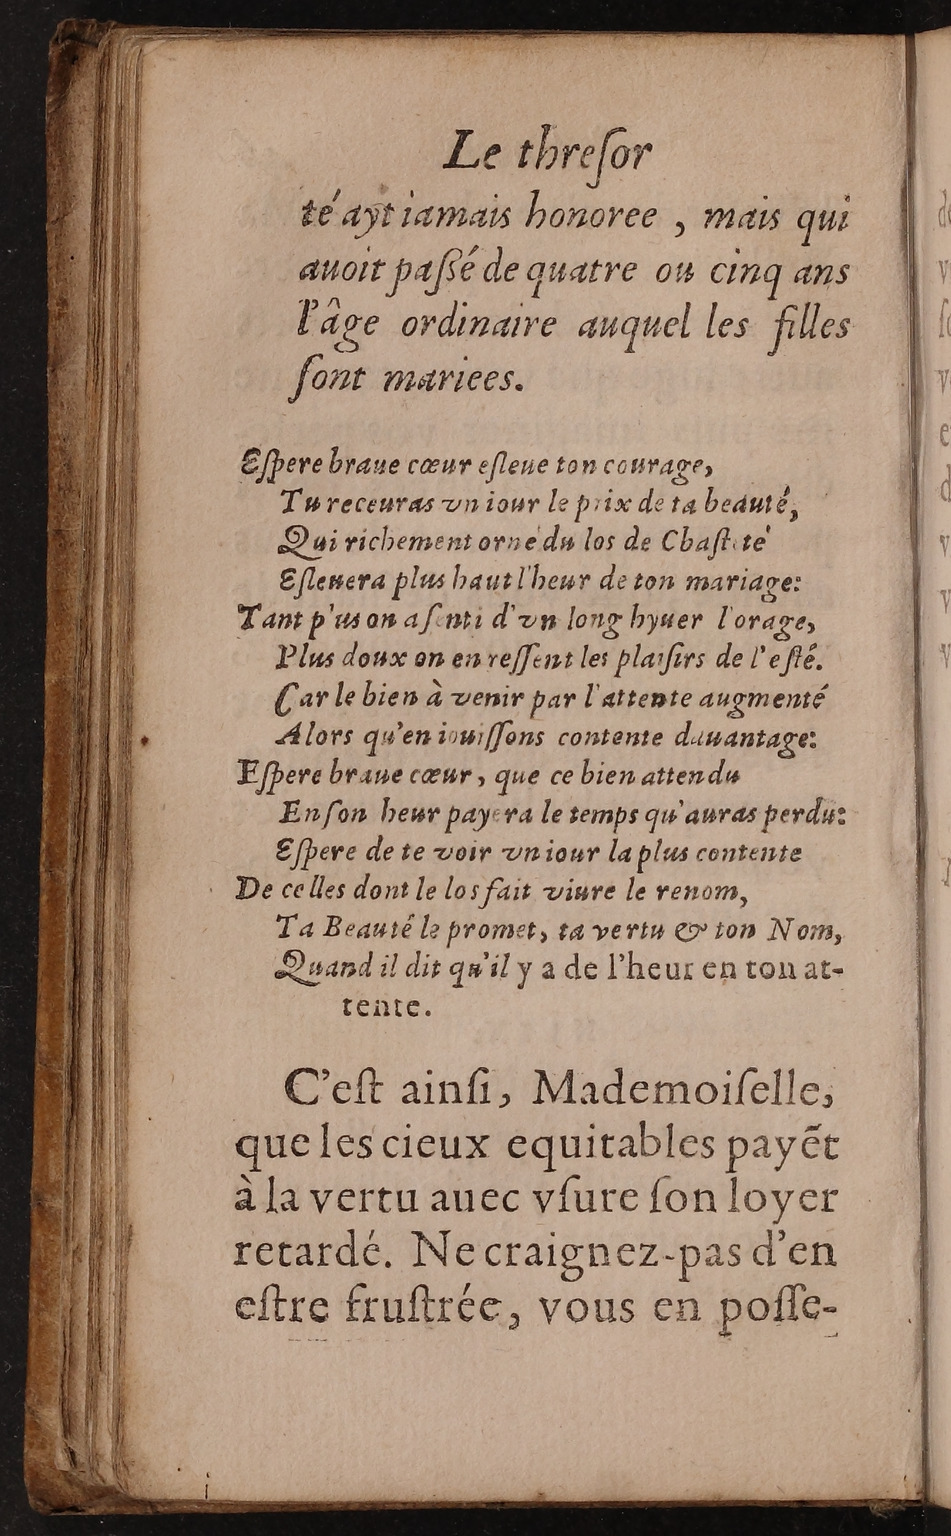 Le threſor
té ayt iamais honoree , mais qui
auoit paſſé de quatre ou cinq ans
l'âge ordinaire auquel les filles
ſont mariees.
Eſpere braue cœur eſleue ton courage,
Tu receuras vn iour le prix de ta beauté,
Qui richement orné du los de Chaſteté
Eſleuera plus haut l'heur de ton mariage:
Tant plus on a ſenti d'vn long hyuer l'orage,
Plus doux on en reſſent les plaiſirs de l'eſté.
Car le bien à venir par l'attente augmenté
Alors qu'en iouiſſons contente dauantage:
Eſpere braue cœur, que ce bien attendu
En ſon heur payera le temps qu'auras perdu:
Eſpere de te voir vn iour la plus contente
De celles dont le los fait viure le renom,
Ta Beauté le promet, ta vertu & ton Nom,
Quand il dit qu'il y a de l'heur en ton at-
tente.
C'eſt ainſi, Mademoiſelle,
que les cieux equitables payẽt
à la vertu auec vſure ſon loyer
retardé. Ne craignez-pas d'en
eſtre fruſtrée, vous en poſſe-